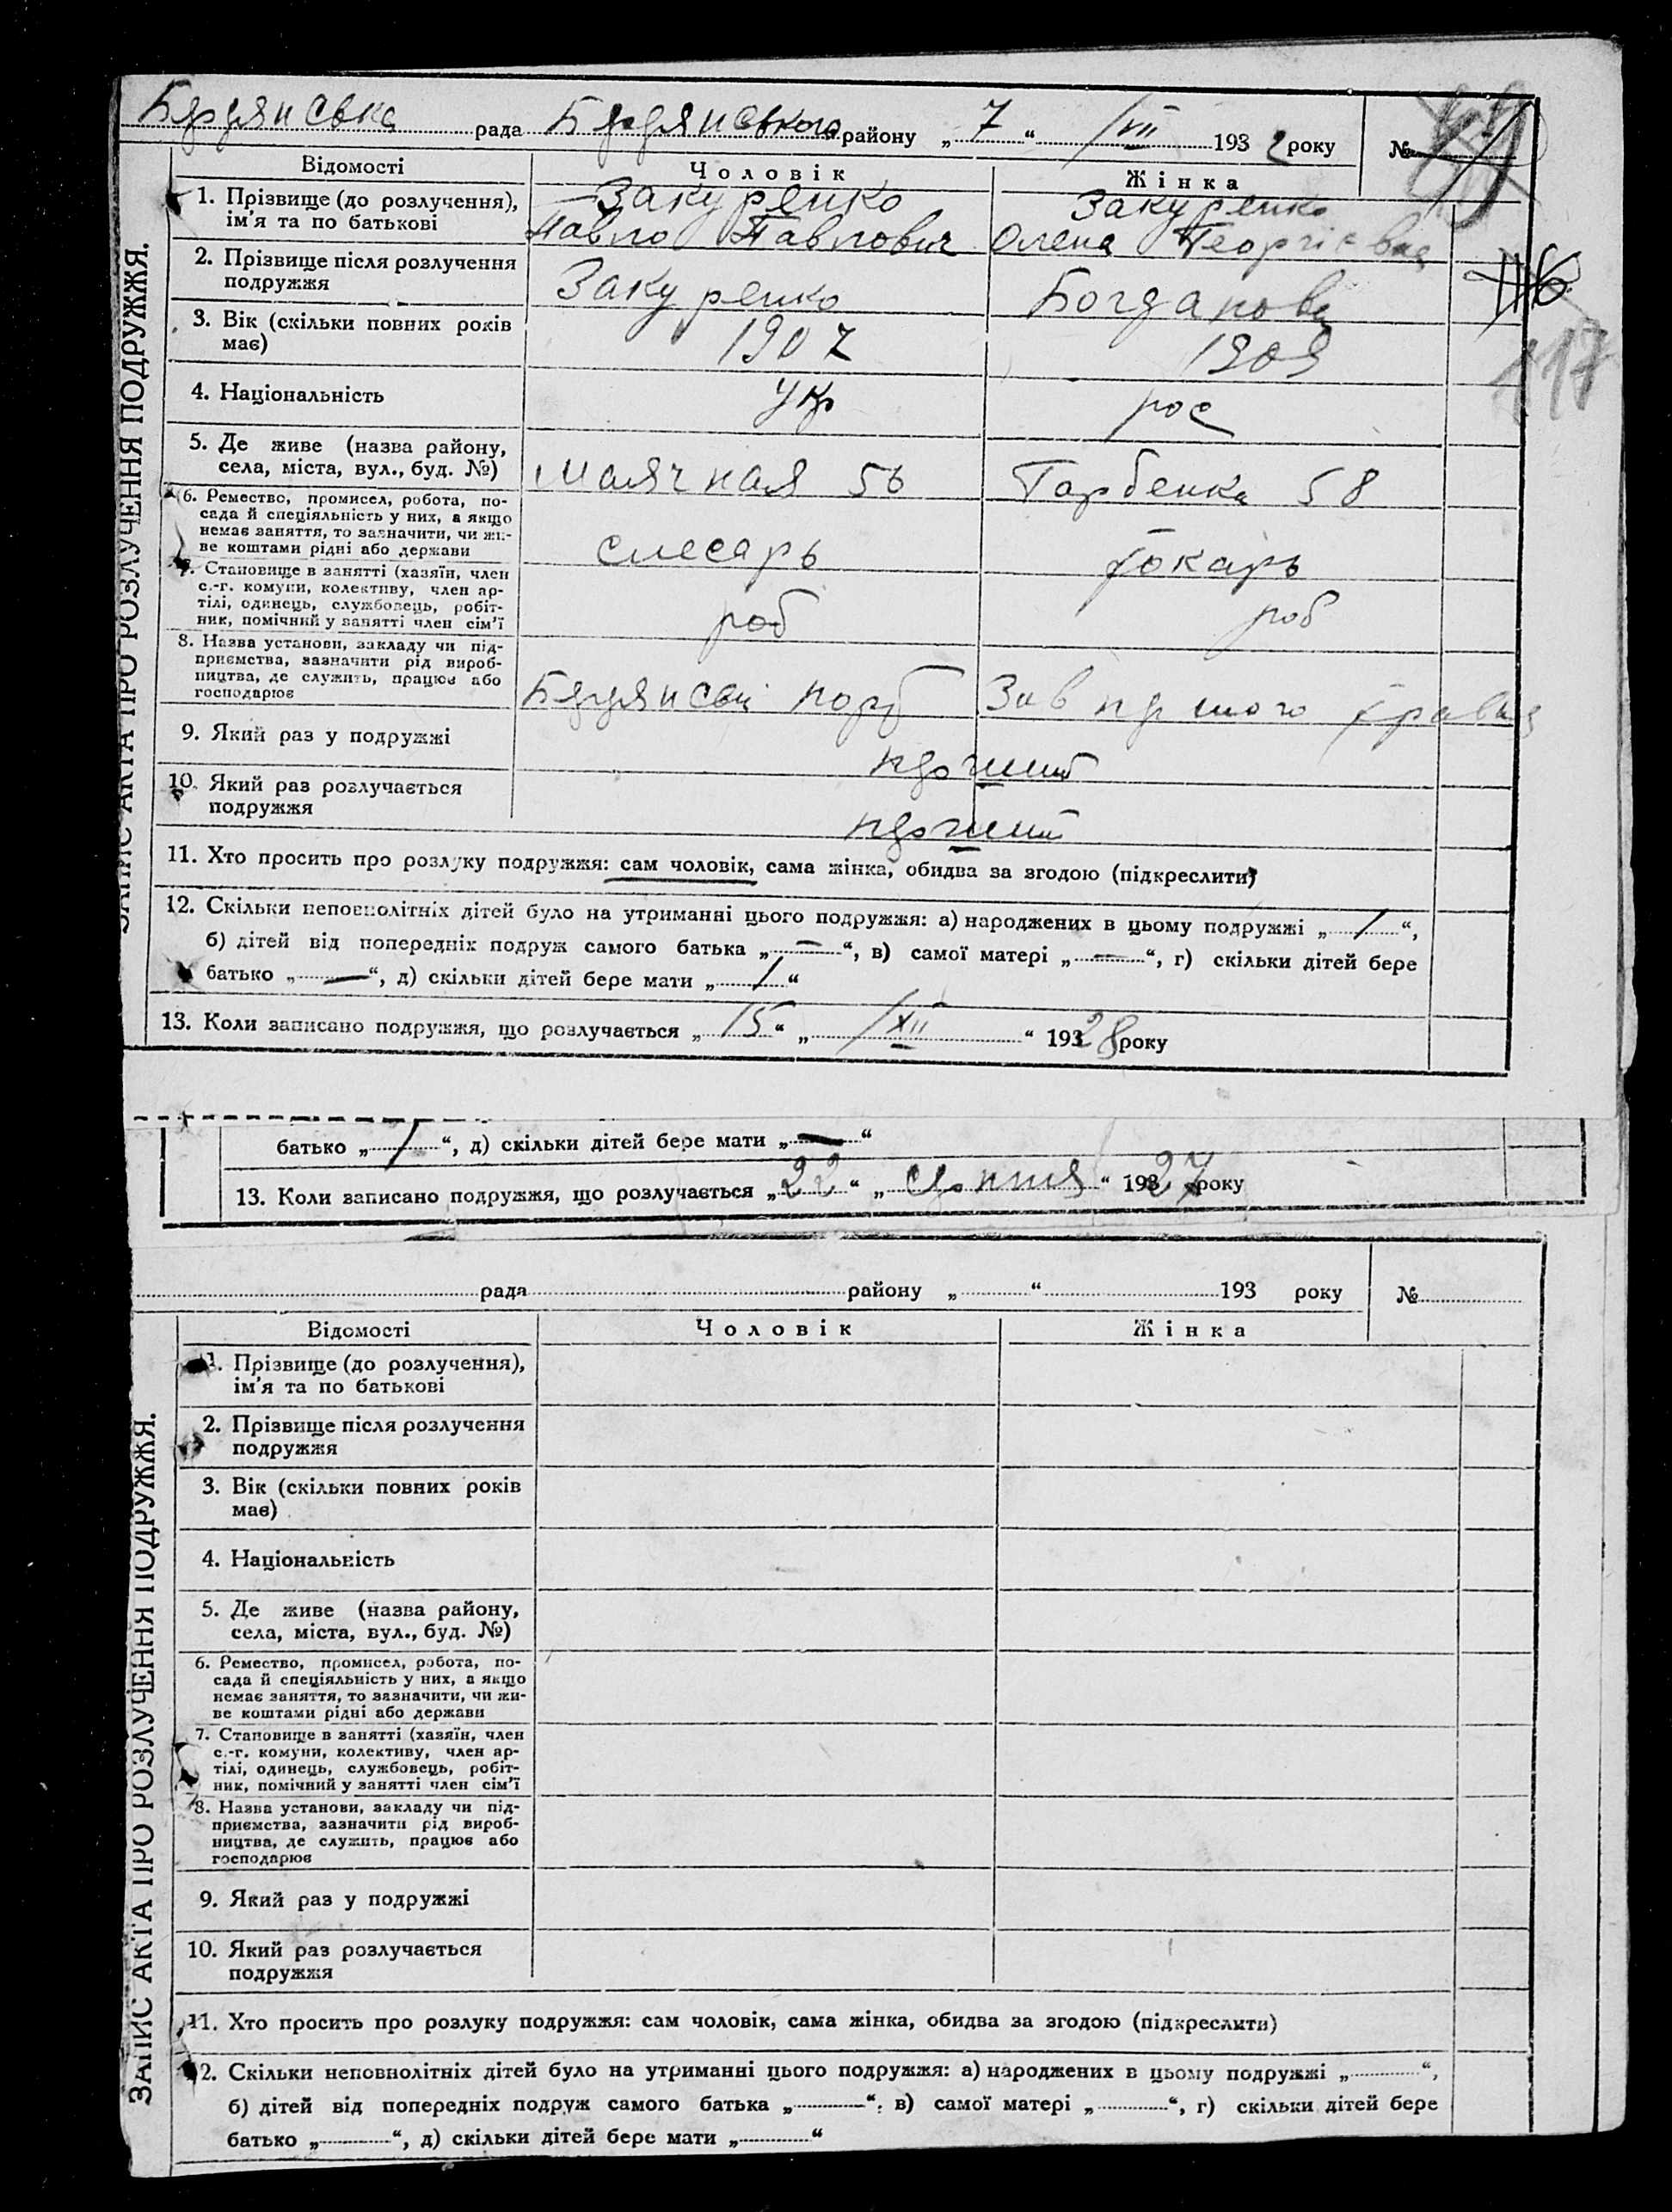 Бердянська рада Бердянського району „ 7 “ /VII 1932 року №
117
ЗАПИС АКТА ПРО РОЗЛУЧЕННЯ ПОДРУЖЖЯ.
Відомості Чоловік Жінка
1. Прізвище (до розлучення), Закуренко Закуренко
ім'я та по батькові Павло Павлович Олена Георгієвна
2. Прізвище після розлучення
подружжя Закуренко Богданова
3. Вік (скільки повних років
має) 1907 1909
4. Національність Укр рос
5. Де живе (назва району,
села, міста, вул., буд. №) Маячная 56 Горбенка 58
6. Ремество, промисел, робота, по-
сада й спеціяльність у них, а якщо
немає заняття, то зазначити, чи жи-
ве коштами рідні або держави слесарь токарь
7. Становище в занятті (хазяїн, член
с.-г. комуни, колективу, член ар-
тілі, одинець, службовець, робіт-
ник, помічний у занятті член сім'ї роб роб
8. Назва установи, закладу чи під-
приємства, зазначити рід вироб-
ництва, де служить, працює або
господарює Бердянськ порт Зав першого травня
9. Який раз у подружжі перший
10. Який раз розлучається
подружжя перший
11. Хто просить про розлуку подружжя: сам чоловік, сама жінка, обидва за згодою (підкреслити)
12. Скільки неповнолітніх дітей було на утриманні цього подружжя: а) народжених в цьому подружжі „ 1 “,
б) дітей від попередніх подруж самого батька „ — “, в) самої матері „ — “, г) скільки дітей бере
батько „ — “, д) скільки дітей бере мати „ 1 “
13. Коли записано подружжя, що розлучається „ 15 “ „ /XII “ 1928 року
батько „ 1 “, д) скільки дітей бере мати „ — “
13. Коли записано подружжя, що розлучається „ 22 “ „ серпня “ 1927 року
рада району „ “ 193 року №
ЗАПИС АКТА ПРО РОЗЛУЧЕННЯ ПОДРУЖЖЯ.
Відомості Чоловік Жінка
1. Прізвище (до розлучення),
ім'я та по батькові
2. Прізвище після розлучення
подружжя
3. Вік (скільки повних років
має)
4. Національність
5. Де живе (назва району,
села, міста, вул., буд. №)
6. Ремество, промисел, робота, по-
сада й спеціяльність у них, а якщо
немає заняття, то зазначити, чи жи-
ве коштами рідні або держави
7. Становище в занятті (хазяїн, член
с.-г. комуни, колективу, член ар-
тілі, одинець, службовець, робіт-
ник, помічний у занятті член сім'ї
8. Назва установи, закладу чи під-
приємства, зазначити рід вироб-
ництва, де служить, працює або
господарює
9. Який раз у подружжі
10. Який раз розлучається
подружжя
11. Хто просить про розлуку подружжя: сам чоловік, сама жінка, обидва за згодою (підкреслити)
12. Скільки неповнолітніх дітей було на утриманні цього подружжя: а) народжених в цьому подружжі „ “,
б) дітей від попередніх подруж самого батька „ “, в) самої матері „ “, г) скільки дітей бере
батько „ “, д) скільки дітей бере мати „ “